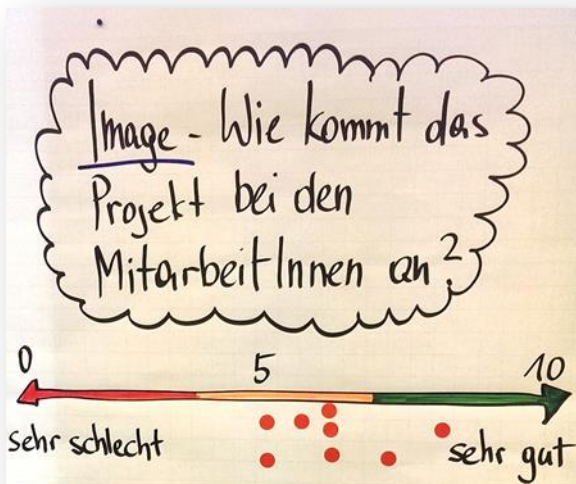 Image - Wie kommt das
Projekt bei den
MitarbeitInnen an?
0 5 10
sehr schlecht sehr gut